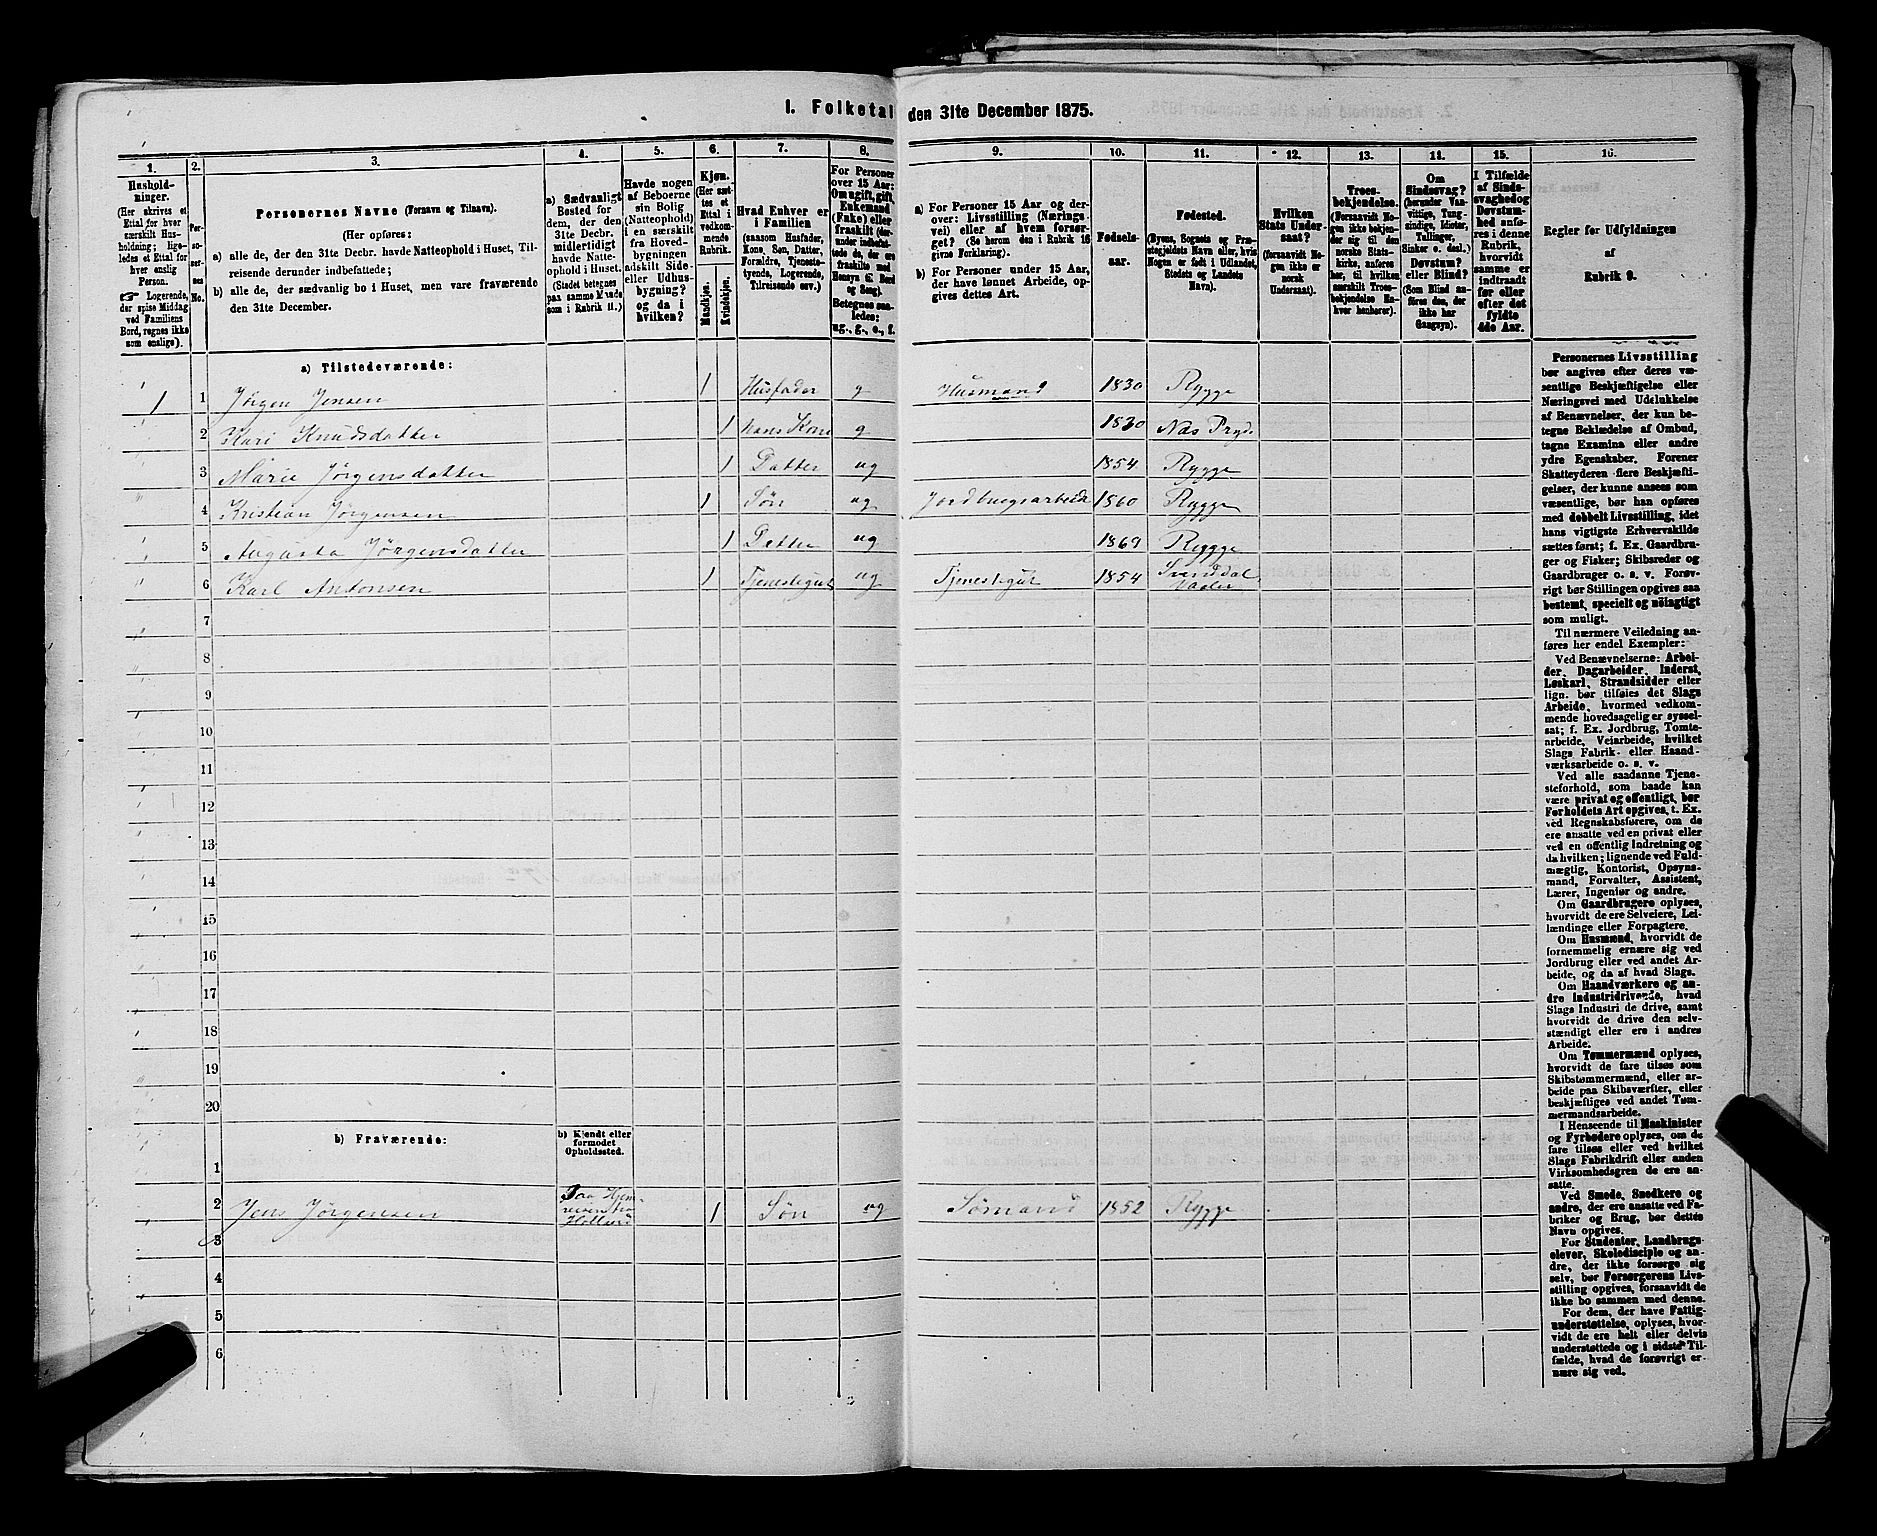 I. Folketal den 31te December 1875.
1. 2. 3. 4. 5. 6. 7. 8. 9. 10. 11. 12. 13. 14. 15. 16.
Hushold-
ninger.
(Her skrives et
Ettal for hver
særskilt Hus-
holdning; lige-
ledes et Ettal for
hver enslig
Person.
☞ Logerende,
der spise Middag
ved Familiens
Bord, regnes ikke
som enslige).
Per-
so-
ner-
nes
No.
Personernes Navne (Fornavn og Tilnavn).
(Her opføres:
a) alle de, der den 31te Decbr. havde Natteophold i Huset, Til-
reisende derunder indbefattede;
b) alle de, der sædvanlig bo i Huset, men vare fraværende
den 31te December.
a) Sædvanligt
Bosted for
dem, der den
31te Decbr.
midlertidigt
havde Natte-
ophold i Huset.
(Stedet betegnes
paa samme Maade
som i Rubrik 11.)
Havde nogen
af Beboerne
sin Bolig
(Natteophold)
i en særskilt
fra Hoved-
bygningen
adskilt Side-
eller Udhus-
bygning?
og da i
hvilken?
Kjøn.
(Her sæt-
tes et
Ettal i
vedkom-
mende
Rubrik.
Mandkjøn.
Kvindekjøn.
Hvad Enhver er
i Familien
(saasom Husfader,
Kone, Søn, Datter,
Forældre, Tjeneste-
tyende, Logerende,
Tilreisende osv.)
For Personer
over 15 Aar:
Om ugift, gift,
Enkemand
(Enke) eller
fraskilt (der-
under indbefat-
tede de, der ere
fraskilte med
Hensyn til Bord
og Seng).
Betegnes saa-
ledes:
ug., g., e., f.
a) For Personer 15 Aar og der-
over: Livsstilling (Nærings-
vei) eller af hvem forsør-
get? (Se herom den i Rubrik 16
givne Forklaring).
b) For Personer under 15 Aar,
der have lønnet Arbeide, op-
gives dettes Art.
Fødsels-
aar.
Fødested.
(Byens, Sognets og Præ-
stegjeldets Navn eller, hvis
Nogen er født i Udlandet,
Stedets og Landets
Navn).
Hvilken
Stats Under-
saat?
(forsaavidt No-
gen ikke er
norsk
Undersaat).
Troes-
bekjendelse.
(Forsaavidt No-
gen ikke bekjen-
der sig til den
norske Stats-
kirke, anføres
her, til hvilken
særskilt Troes-
bekjendelse En-
hver henhører).
Om
Sindssvag?
(herunder Van-
vittige, Tung-
sindige, Idioter,
Tullinger,
Sinker o. desl.)
Døvstum?
eller Blind?
(Som Blind an-
føres den, der
ikke har
Gangsyn).
I Tilfælde
af Sinds-
svaghed og
Døvstum-
hed anfø-
res i denne
Rubrik,
hvorvidt
samme er
indtraadt
før eller
efter det
fyldte
4de Aar.
Regler før Udfyldningen
af
Rubrik 9.
a) Tilstedeværende:
1 1 Jørgen Jensen 1 Husfader g Husmand 1830 Rygge
2 Kari Knudsdatter 1 hans Kone g 1830
3 Marie Jørgensdatter 1 Datter ug 1854 Rygge
4 Kristian Jørgensen 1 Søn ug Jordbrugsarbeide 1860 Rygge
5 Augusta Jørgensdatter 1 Datter ug 1869 Rygge
6 Karl Antonsen 1 Tjenestegut ug Tjenestegut 1854
7
8
9
10
11
12
13
14
15
16
17
18
19
20
b) Fraværende:
b) Kjendt eller
formodet
Opholdssted.
1
2 Jens Jørgensen Paa Hjem-
reisen fra
Holland 1 Søn ug Sømand 1852 Rygge
3
4
5
6
Personernes Livsstilling
bør angives efter deres væ-
sentlige Beskjæftigelse eller
Næringsvei med Udelukkelse
af Benævnelser, der kun be-
tegne Beklædelse af Ombud,
tagne Examina eller andre
ydre Egenskaber. Forener
Skatteyderen flere Beskjæfti-
gelser, der kunne ansees som
væsentlige, bør han opføres
med dobbelt Livsstilling, idet
hans vigtigste Erhvervskilde
sættes først; f. Ex. Gaardbru-
ger og Fisker; Skibsreder og
Gaardbruger o. s. v. Forøv-
rigt bør Stillingen opgives saa
bestemt, specielt og nöiagtigt
som muligt.
Til nærmere Veiledning an-
føres her endel Exempler:
Ved Benævnelserne: Arbei-
der, Dagarbeider, Inderst,
Løskarl, Strandsidder eller
lign. bør tilføies det Slags
Arbeide, hvormed vedkom-
mende hovedsagelig er syssel-
sat; f. Ex. Jordbrug, Tomte-
arbeide, Veiarbeide, hvilket
Slags Fabrik- eller Haand-
værksarbeide o. s. v.
Ved alle saadanne Tjene-
steforhold, som baade kan
være privat og offentligt, bør
Forholdets Art opgives, t. Ex.
ved Regnskabsførere, om de
ere ansatte ved en privat eller
ved en offentlig Indretning og
da hvilken; lignende ved Fuld-
mægtig, Kontorist, Opsyns-
mand, Forvalter, Assistent,
Lærer, Ingeniør og andre.
Om Gaardbrugere oplyses,
hvorvidt de ere Selveiere, Lei-
lændinge eller Forpagtere.
Om Husmænd, hvorvidt de
fornemmelig ernære sig ved
Jordbrug eller ved andet Ar-
beide, og da af hvad Slags.
Om Haandværkere og an-
dre Industridrivende, hvad
Slags Industri de drive, samt
hvorvidt de drive den selv-
stændigt eller ere i andres
Arbeide.
Om Tømmermænd oplyses,
hvorvidt de fare tilsøs som
Skibstømmermænd, eller ar-
beide paa Skibsværfter, eller
beskjæftiges ved andet Tøm-
mermandsarbeide.
I Henseende til Maskinister
og Fyrbødere oplyses, om de
fare tilsøs eller ved hvilket
Slags Fabrikdrift eller anden
Virksomhedsgren de ere an-
satte.
Ved Smede, Snedkere og
andre, der ere ansatte ved Fa-
briker og Brug, bør dettes
Navn opgives.
For Studenter, Landbrugs-
elever, Skoledisciple og an-
dre, der ikke forsørge sig
selv, bør Forsørgerens Livs-
stilling opgives, forsaavidt de
ikke bo sammen med denne.
For dem, der have Fattig-
understøttelse, oplyses, hvor-
vidt de ere helt eller delvis
understøttede og i sidste Til-
fælde, hvad de forøvrigt er-
nære sig ved.